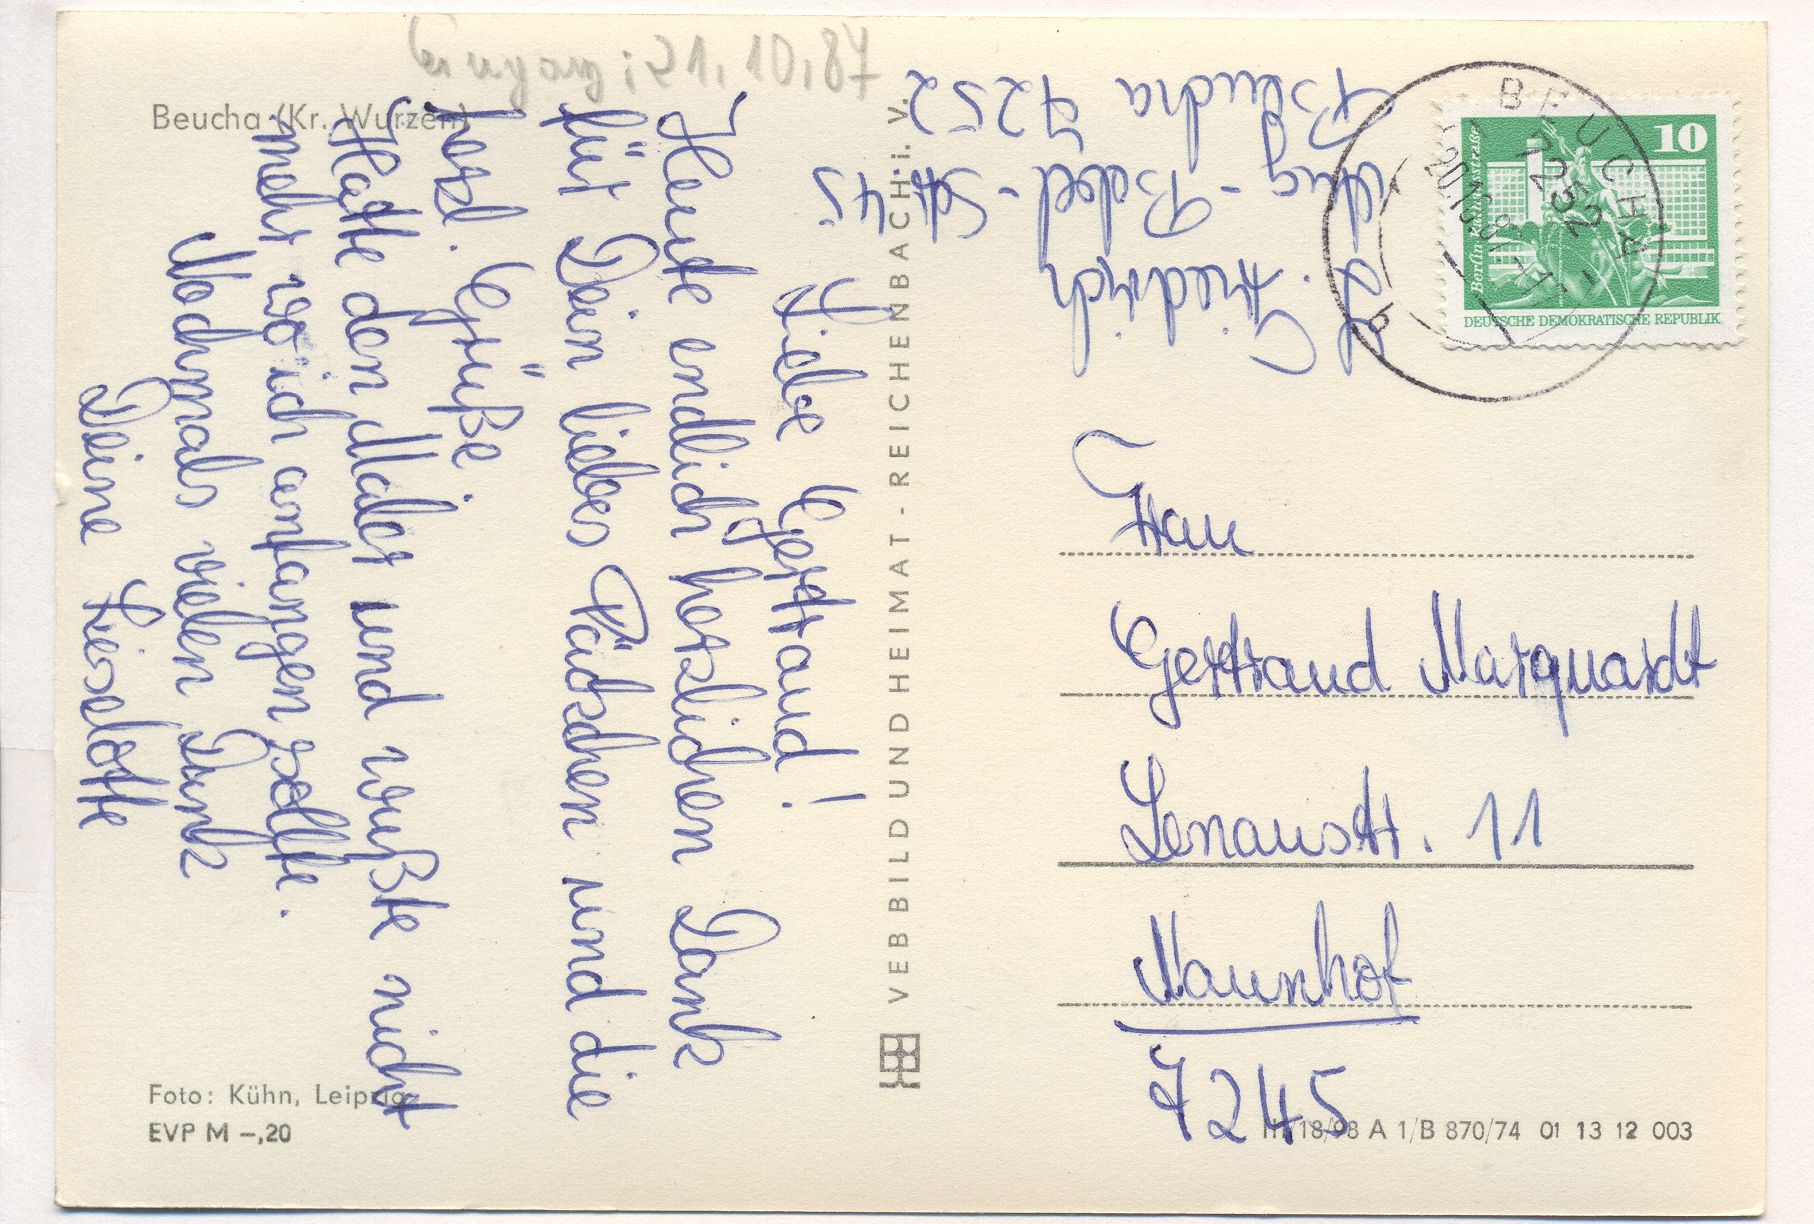 Eingang: 21.10.87
Beucha (Kr. Wurzen)
Liebe Gertraud!
Heute endlich herzlichen Dank
für Dein liebes Päckchen und die
herzl. Grüße.
Hatte den Maler und wußte nicht
mehr wo ich anfangen sollte.
Nochmals vielen Dank
Deine Lieselotte
Foto: Kühn, Leipzig
EVP M –,20
VEB BILD UND HEIMAT - REICHENBACH i. V.
L. Friedrich
Aug-Bebel-Str. 45
Beucha 7252
BEUCHA
7252
20.10.87
b
10
Berlin-Rathausstraße
DEUTSCHE DEMOKRATISCHE REPUBLIK
Frau
Gertraud Marquardt
Lenaustr. 11
Naunhof
7245
A 1/B 870/74 01 13 12 003